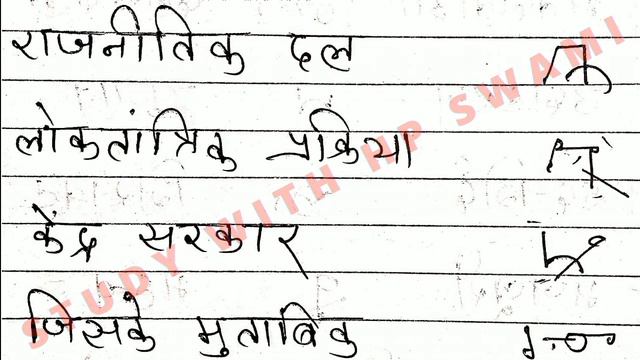 राजनीतिक दल
लोकतांत्रिक प्रक्रिया
केंद्र सरकार
जिसके मुताबिक
STUDY WITH HP SWAMI